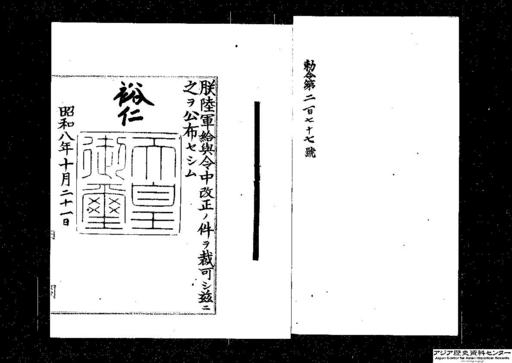 勅令第二百七十七號
朕陸軍給與令中改正ノ件ヲ裁可シ玆ニ
之ヲ公布セシム
裕仁
天皇御璽
昭和八年十月二十一日
アジア歴史資料センター
Japan Center for Asian Historical Records